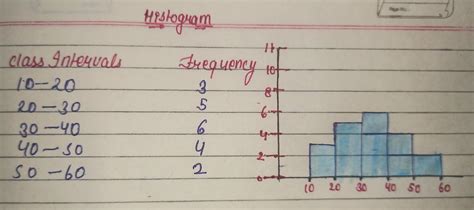 Histogram
Class Intervals Frequency
10-20 3
20-30 5
30-40 6
40-50 4
50-60 2
10
8
6
4
2
0
10 20 30 40 50 60